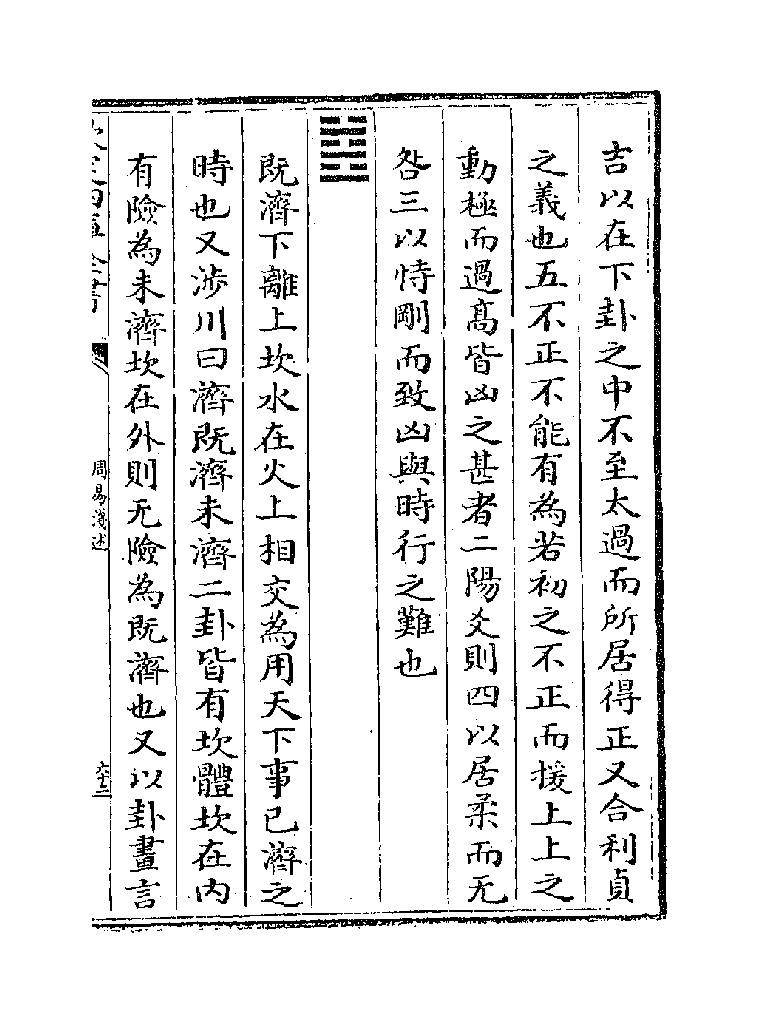 吉以在下卦之中不至太過而所居得正又合利貞
之義也五不正不能有為若初之不正而援上上之
動極而過髙皆凶之甚者二陽爻則四以居柔而无
咎三以恃剛而致凶與時行之難也
䷾
既濟下離上坎水在火上相交為用天下事已濟之
時也又涉川曰濟既濟未濟二卦皆有坎體坎在内
有險為未濟坎在外則无險為既濟也又以卦畫言
欽定四庫全書
周易淺述
六十三